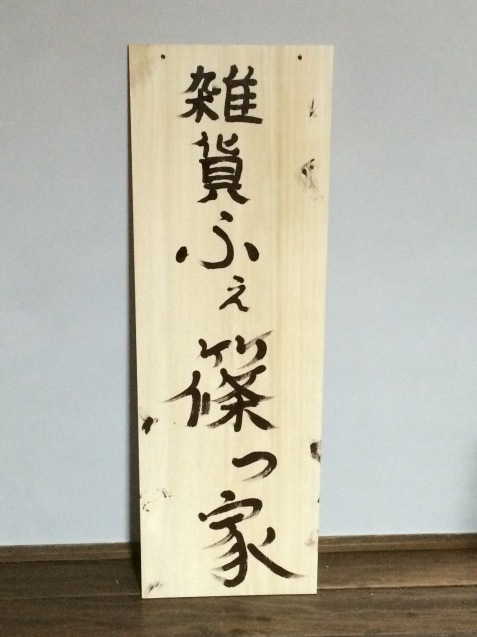 雑貨ふぇ篠っ家